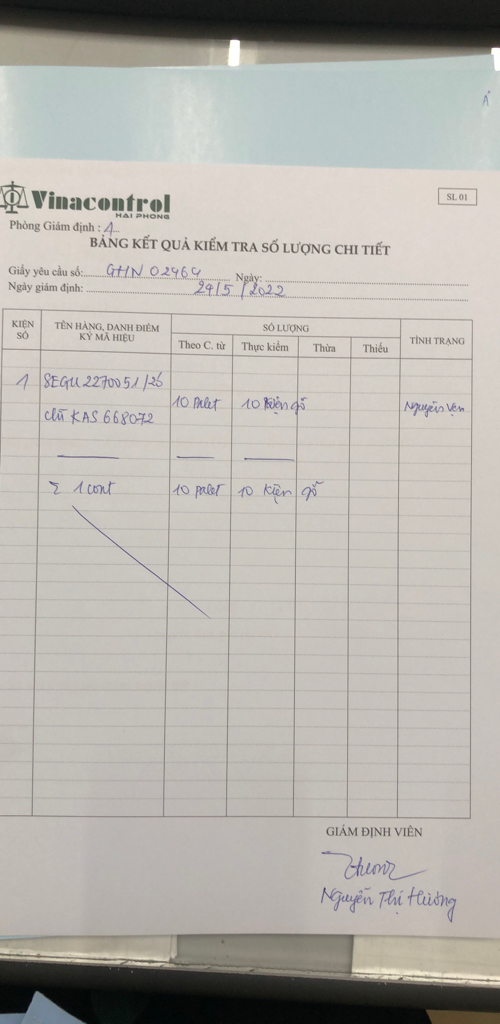 A
Vinacontrol
HAI PHONG
SL 01
Phòng Giám định : 4
BẢNG KẾT QUẢ KIỂM TRA SỐ LƯỢNG CHI TIẾT
Giấy yêu cầu số: GHN 02464 Ngày:
Ngày giám định: 24/5/2022
KIỆN SỐ TÊN HÀNG, DANH ĐIỂM KÝ MÃ HIỆU SỐ LƯỢNG TÌNH TRẠNG
Theo C. từ Thực kiểm Thừa Thiếu
1 SEGU 2270051/20
10 palet 10 kiện gỗ Nguyên vẹn
chì KAS 668072
Σ 1 cont 10 palet 10 kiện gỗ
GIÁM ĐỊNH VIÊN
Nguyễn Thị Hương